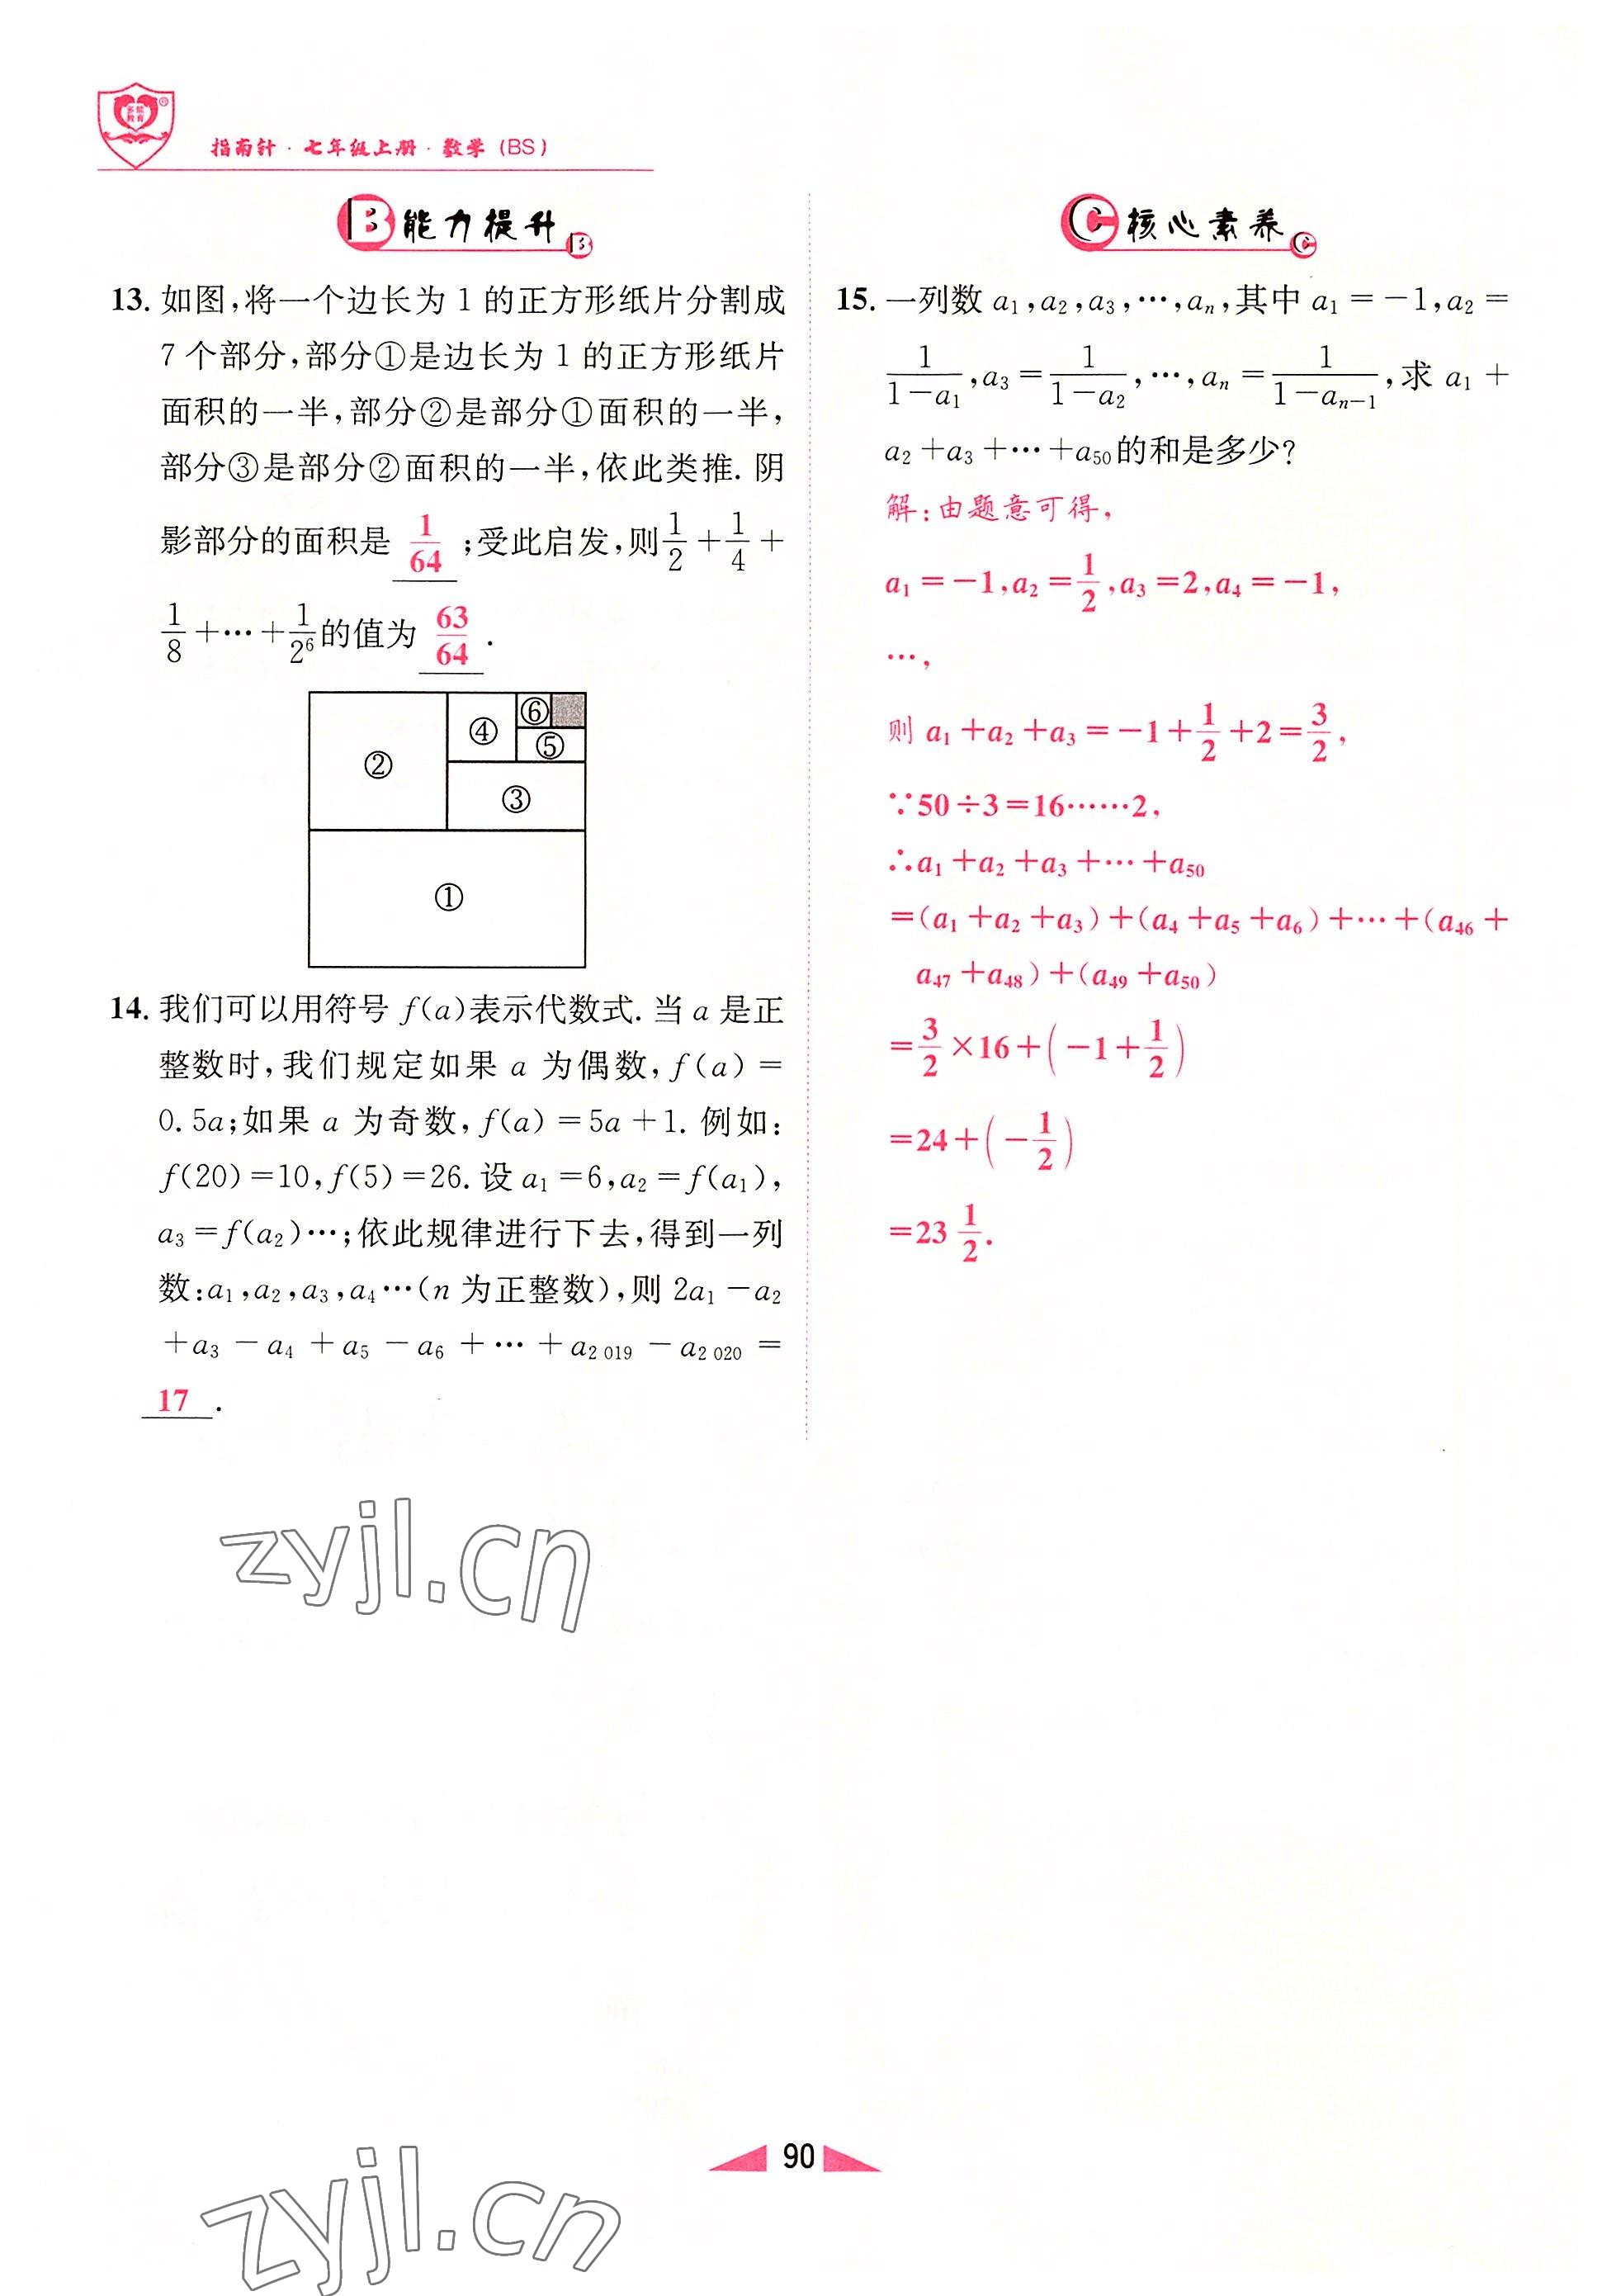 多能
教育
指南针·七年级上册·数学(BS)
B 能力提升 B
13. 如图,将一个边长为 1 的正方形纸片分割成
7 个部分,部分①是边长为 1 的正方形纸片
面积的一半,部分②是部分①面积的一半,
部分③是部分②面积的一半,依此类推. 阴
影部分的面积是 1/64 ;受此启发,则 1/2 + 1/4 +
1/8 + … + 1/2⁶ 的值为 63/64 .
⑥
④
⑤
②
③
①
14. 我们可以用符号 f(a)表示代数式. 当 a 是正
整数时,我们规定如果 a 为偶数,f(a)=
0.5a;如果 a 为奇数,f(a)=5a+1. 例如:
f(20)=10,f(5)=26. 设 a₁=6,a₂=f(a₁),
a₃=f(a₂)…;依此规律进行下去,得到一列
数:a₁,a₂,a₃,a₄…(n 为正整数),则 2a₁-a₂
+a₃-a₄+a₅-a₆+…+a₂ ₀₁₉-a₂ ₀₂₀=
17 .
C 核心素养 C
15. 一列数 a₁,a₂,a₃,…,aₙ,其中 a₁=-1,a₂=
1/(1-a₁),a₃=1/(1-a₂),…,aₙ=1/(1-aₙ₋₁),求 a₁+
a₂+a₃+…+a₅₀的和是多少?
解:由题意可得,
a₁=-1,a₂=1/2,a₃=2,a₄=-1,
…,
则 a₁+a₂+a₃=-1+1/2+2=3/2,
∵50÷3=16……2,
∴a₁+a₂+a₃+…+a₅₀
=(a₁+a₂+a₃)+(a₄+a₅+a₆)+…+(a₄₆+
a₄₇+a₄₈)+(a₄₉+a₅₀)
=3/2×16+(-1+1/2)
=24+(-1/2)
=23 1/2.
zyjl.cn
90
zyjl.cn